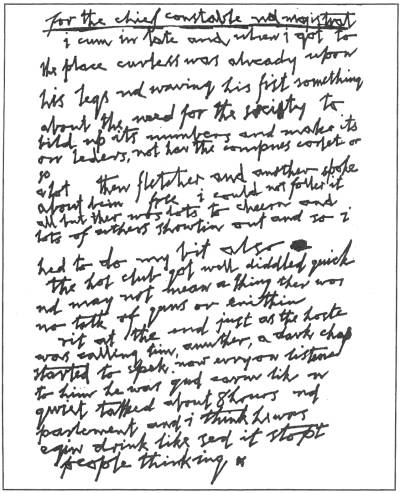 For the chief constable nd magistrat
i cum in late and when i got to
the place curless was already upon
his legs nd waving his fist something
about the need for the society to
bild up its numbers and make its
on leders, not hav the compnes
or so
a lot then fletcher and another spoke
about bein free i could not foller it
all but ther was lots to cheern and
lots of uthers showtin out and so i
hed to do my bit also
the hol club got well diddled quick
nd may not mean a thing ther was
no talk of guns or enithin
rit at the end just as the
was calling tim, anuther, a dark chap
started to spek, now evryon listened
to him he was
quiet talked about 8 hours nd
parlement and i think he was
agin drink like sed it stopt
people thinking